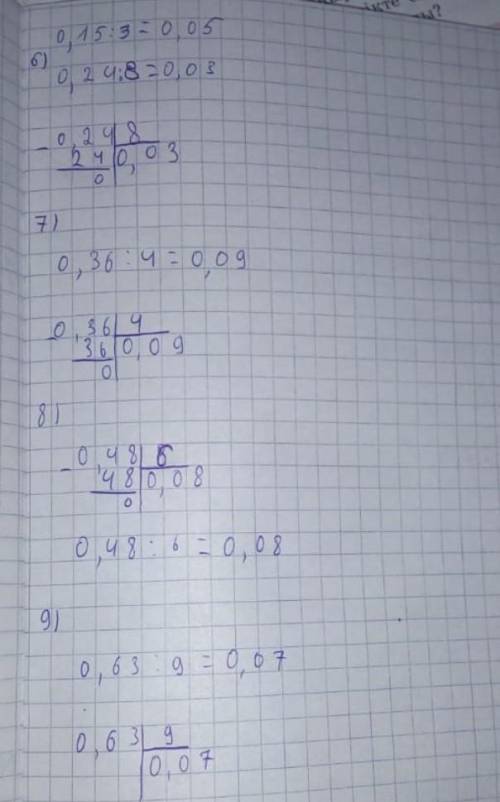 0,15:3=0,05
б)
0,24:8=0,03
- 0,24 8
24 0,03
0
7)
0,36:4=0,09
- 0,36 4
36 0,09
0
8)
- 0,48 6
48 0,08
0
0,48:6=0,08
9)
0,63:9=0,07
0,63 9
0,07